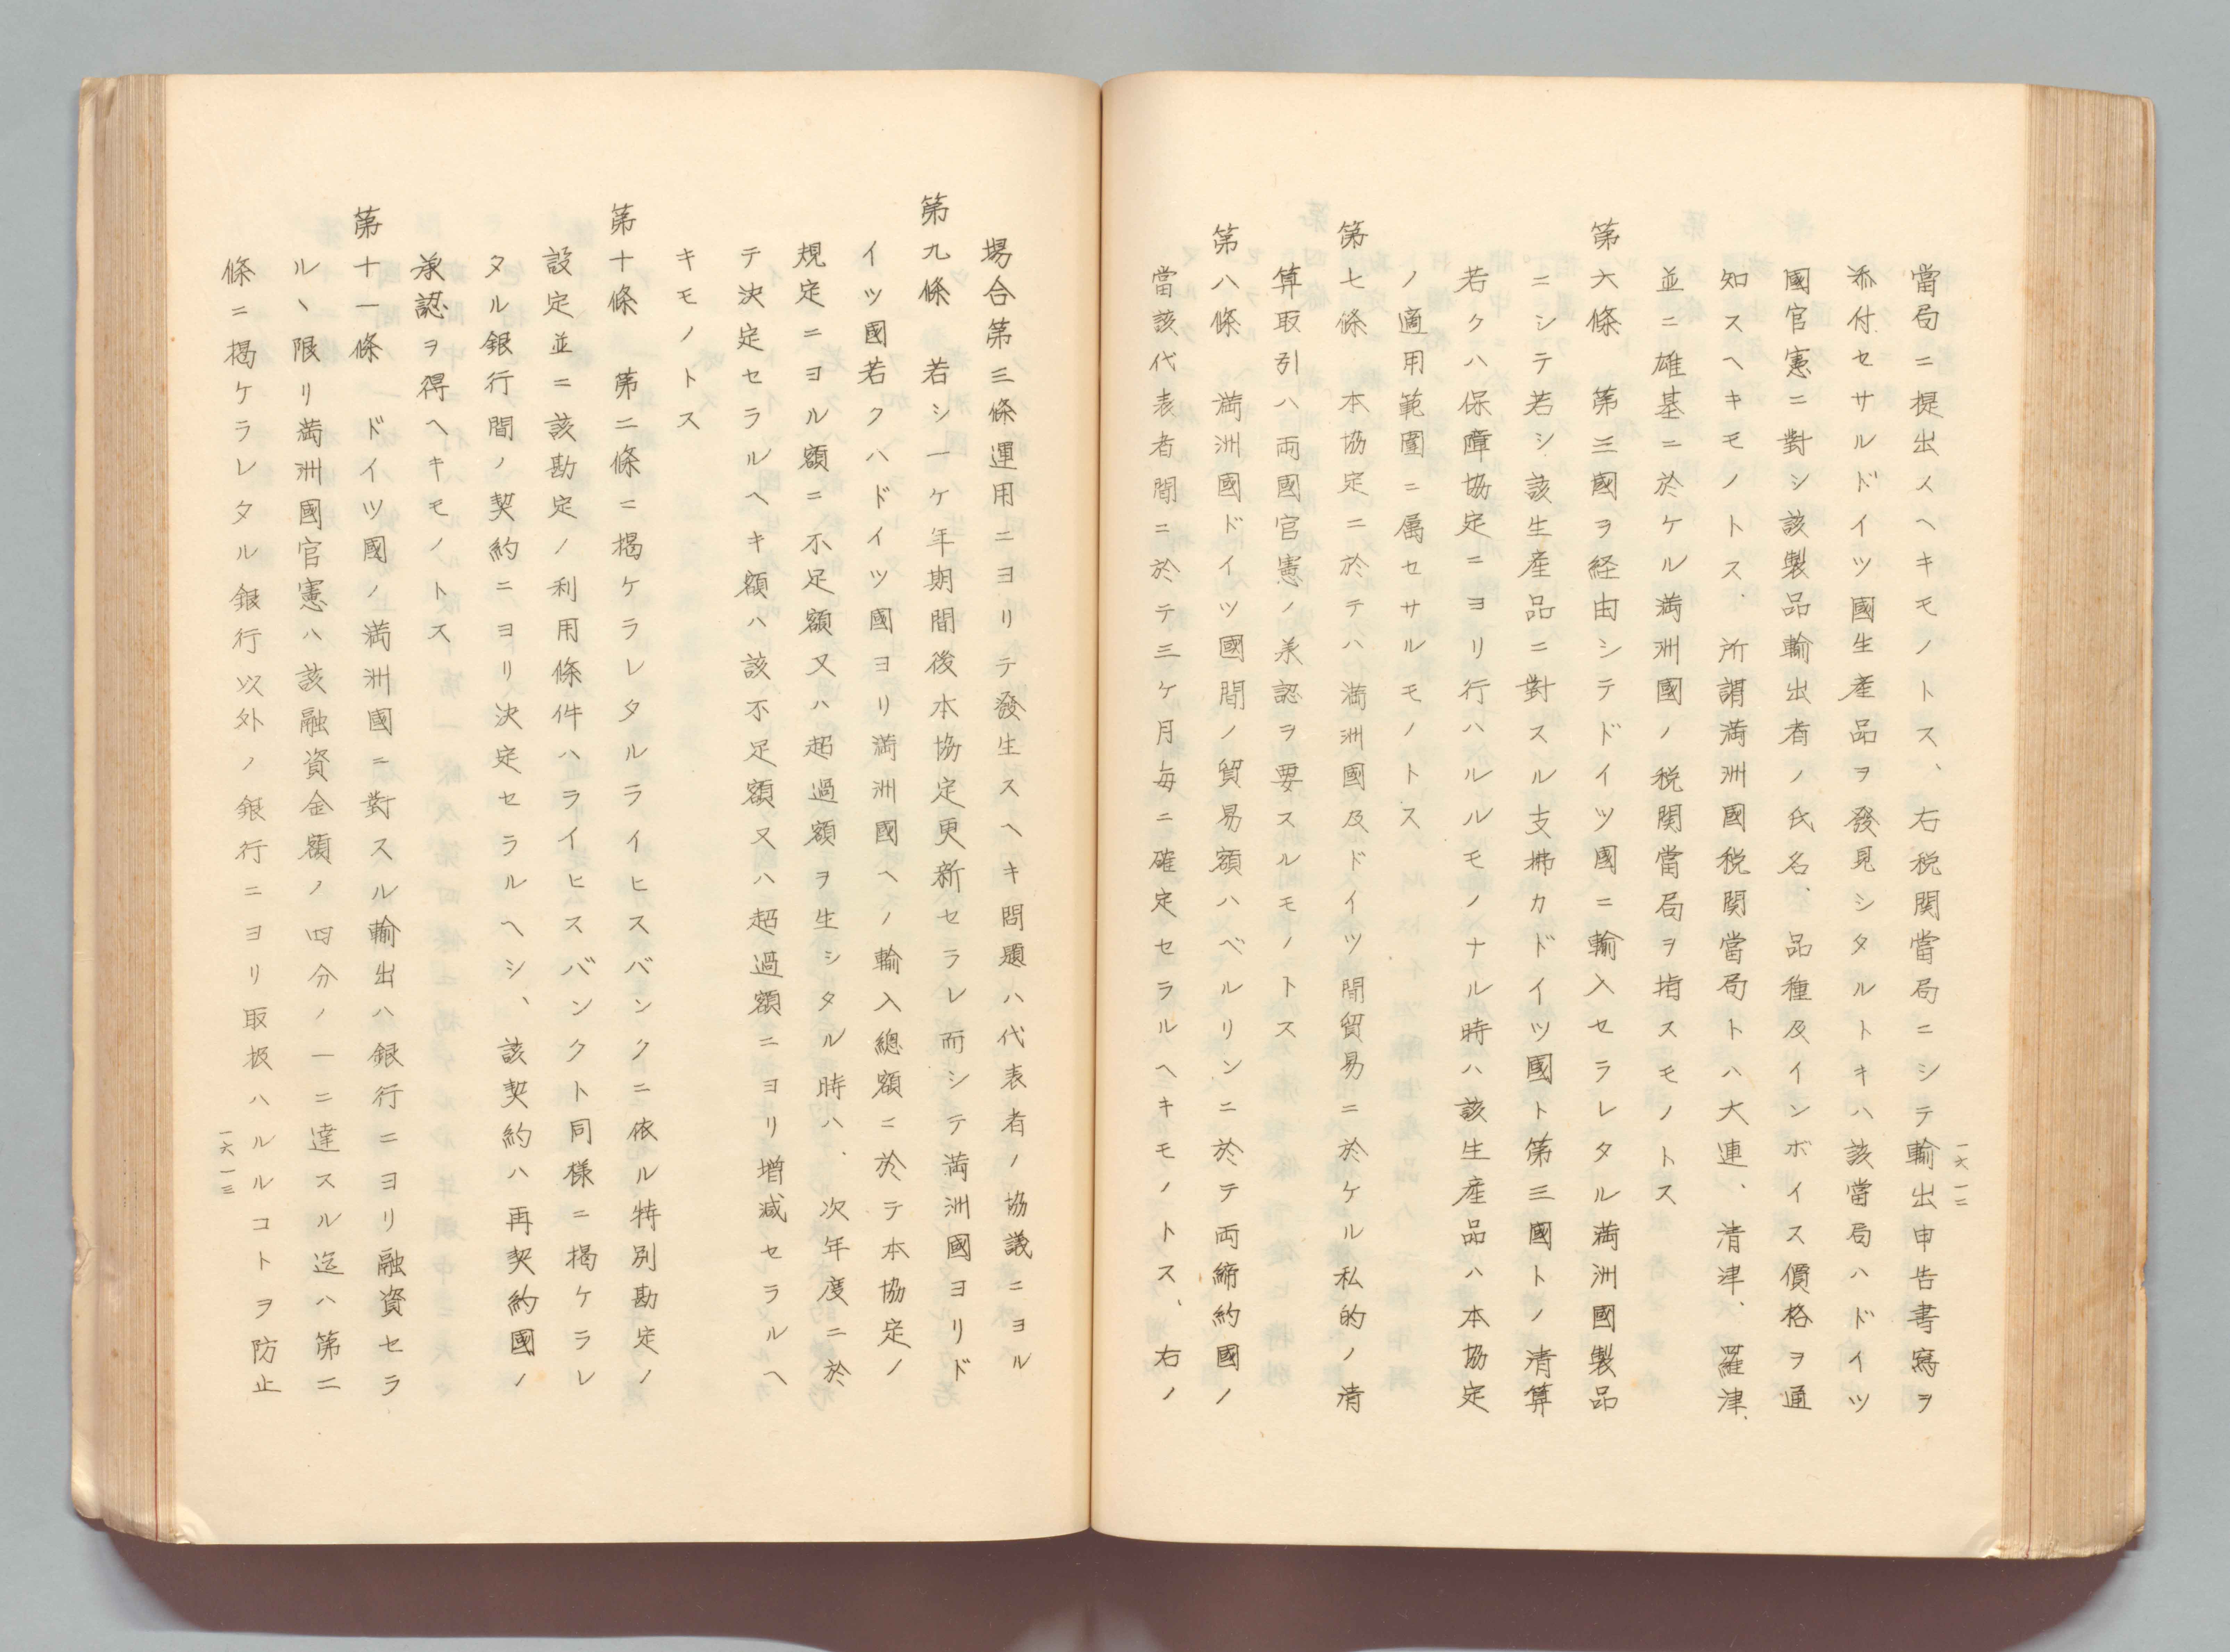 一六一二
當局ニ提出スヘキモノトス、右税関當局ニシテ輸出申告書寫ヲ
添付セサルドイツ國生産品ヲ發見シタルトキハ該當局ハドイツ
國官憲ニ對シ該製品輸出者ノ氏名、品種及インボイス價格ヲ通
知スヘキモノトス、所謂満洲國税関當局トハ大連、清津、羅津、
並ニ雄基ニ於ケル満洲國ノ税関當局ヲ指スモノトス
第六條　第三國ヲ経由シテドイツ國ニ輸入セラレタル満洲國製品
ニシテ若シ該生産品ニ對スル支拂カドイツ國ト第三國トノ清算
若クハ保障協定ニヨリ行ハルルモノナル時ハ該生産品ハ本協定
ノ適用範圍ニ属セサルモノトス
第七條　本協定ニ於テハ満洲國及ドイツ間貿易ニ於ケル私的ノ清
算取引ハ両國官憲ノ承認ヲ要スルモノトス
第八條　満洲國ドイツ國間ノ貿易額ハベルリンニ於テ両締約國ノ
當該代表者間ニ於テ三ケ月毎ニ確定セラルヘキモノトス、右ノ
場合第三條運用ニヨリテ發生スヘキ問題ハ代表者ノ協議ニヨル
第九條　若シ一ケ年期間後本協定更新セラレ而シテ満洲國ヨリド
イツ國若クハドイツ國ヨリ満洲國ヘノ輸入總額ニ於テ本協定ノ
規定ニヨル額ニ不足額又ハ超過額ヲ生シタル時ハ、次年度ニ於
テ決定セラルヘキ額ハ該不足額又ハ超過額ニヨリ増減セラルヘ
キモノトス
第十條　第二條ニ掲ケラレタルライヒスバンクニ依ル特別勘定ノ
設定並ニ該勘定ノ利用條件ハライヒスバンクト同様ニ掲ケラレ
タル銀行間ノ契約ニヨリ決定セラルヘシ、該契約ハ再契約國ノ
承認ヲ得ヘキモノトス
第十一條　ドイツ國ノ満洲國ニ對スル輸出ハ銀行ニヨリ融資セラ
ルヽ限リ満洲國官憲ハ該融資金額ノ四分ノ一ニ達スル迄ハ第二
條ニ掲ケラレタル銀行以外ノ銀行ニヨリ取扱ハルルコトヲ防止
一六一三